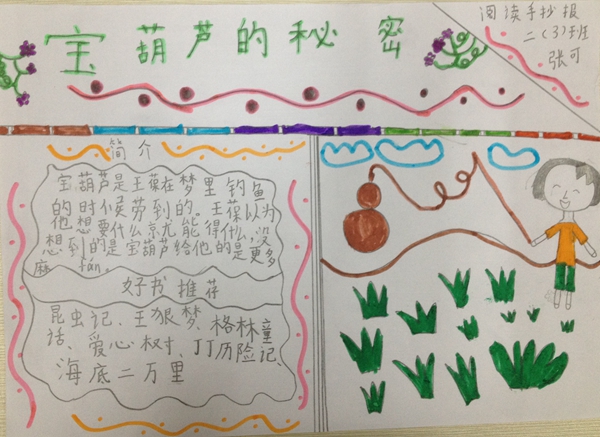 宝葫芦的秘密
阅读手抄报
二(3)班
张可
简介
宝葫芦是王葆在梦里钓鱼
的时候劳到的。王葆以为
他想要什么就能得什么,没
想到的是宝葫芦给他的是更多
麻fán。
好书推荐
昆虫记、王狠梦、格林童
话、爱心树、JJ历险记、
海底二万里